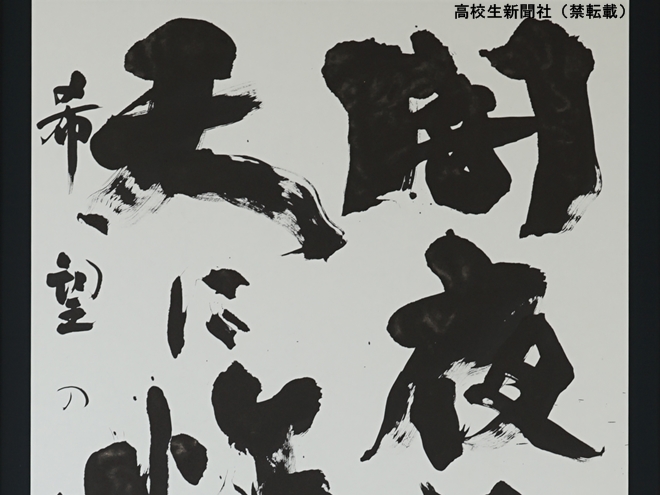 高校生新聞社（禁転載）
闇夜
天に
希望の